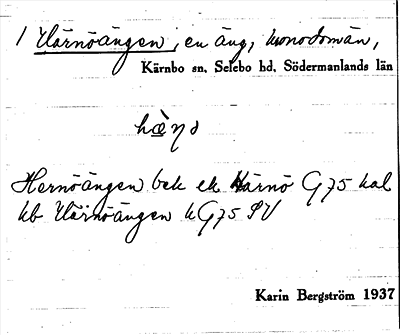 1 Härnöängen, en äng, kronodomän,
Kärnbo sn, Selebo hd, Södermanlands län
Hernöängen bek ek Härnö G75 kal
kb Härnöängen k G75 SV
Karin Bergström 1937